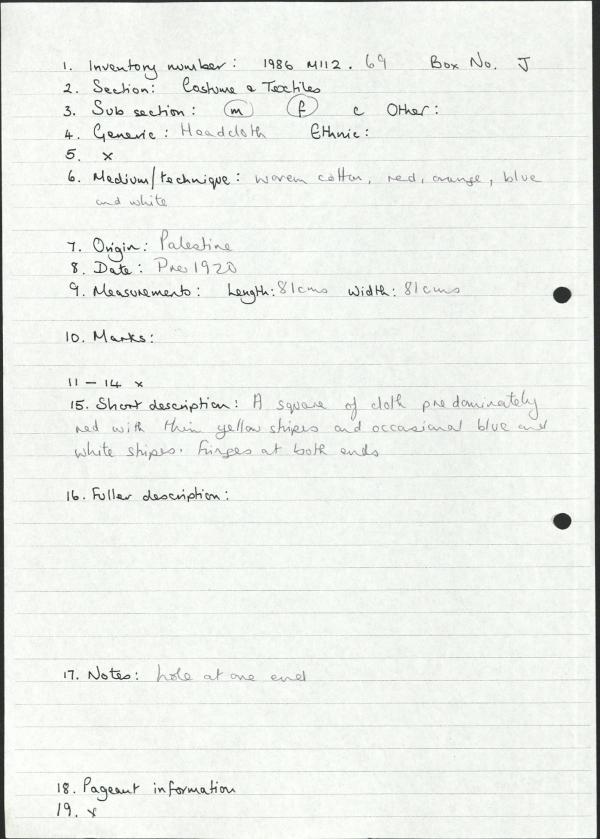 1. Inventory number: 1986 M112.69 Box No. J
2. Section: Costume & Textiles
3. Sub section: m f c Other:
4. Generic: Headcloth Ethnic:
5. x
6. Medium/technique: woven cotton, red, orange, blue
and white
7. Origin: Palestine
8. Date: Pre 1920
9. Measurements: Length: 81cms Width: 81cms
10. Marks:
11 - 14 x
15. Short description: A square of cloth predominately
red with thin yellow stripes and occasional blue and
white stripes. Fringes at both ends
16. Fuller description:
17. Notes: hole at one end
18. Pageant information
19. x